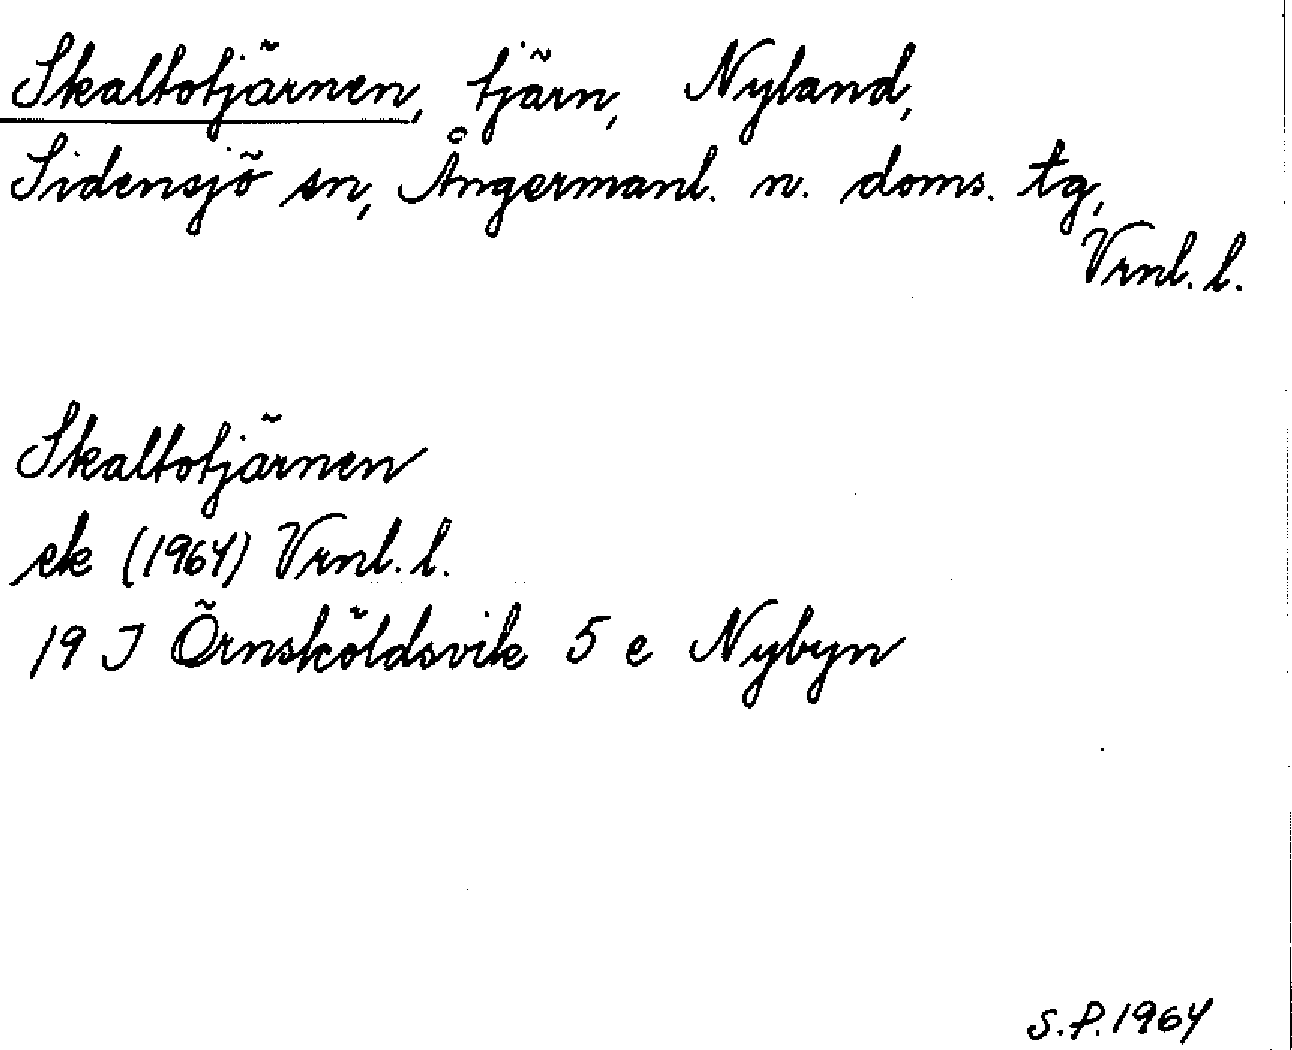 Skaltotjärnen, tjärn, Nyland,
Sidensjö sn, Ångermanl. n. doms. tg,
Vrnl. l.
Skaltotjärnen
ek (1964) Vrnl. l.
19 J Örnsköldsvik 5 e Nybyn
S.P. 1964